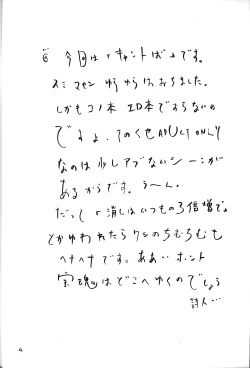 今回は「キャントば」です。
スミマセン ゆうゆうはおちました。
しかもコノ本 エロ本でおらないの
ですよ、そのくせADULT ONLY
なのは少しアブないシーンが
あるからです。う〜ん。
だって「消しはいつもの3倍増で」
とかゆわれたらワシのちむちむも
ヘナヘナです。ああ…ホント
宝魂はどこへゆくのでしょう
詩人…
4